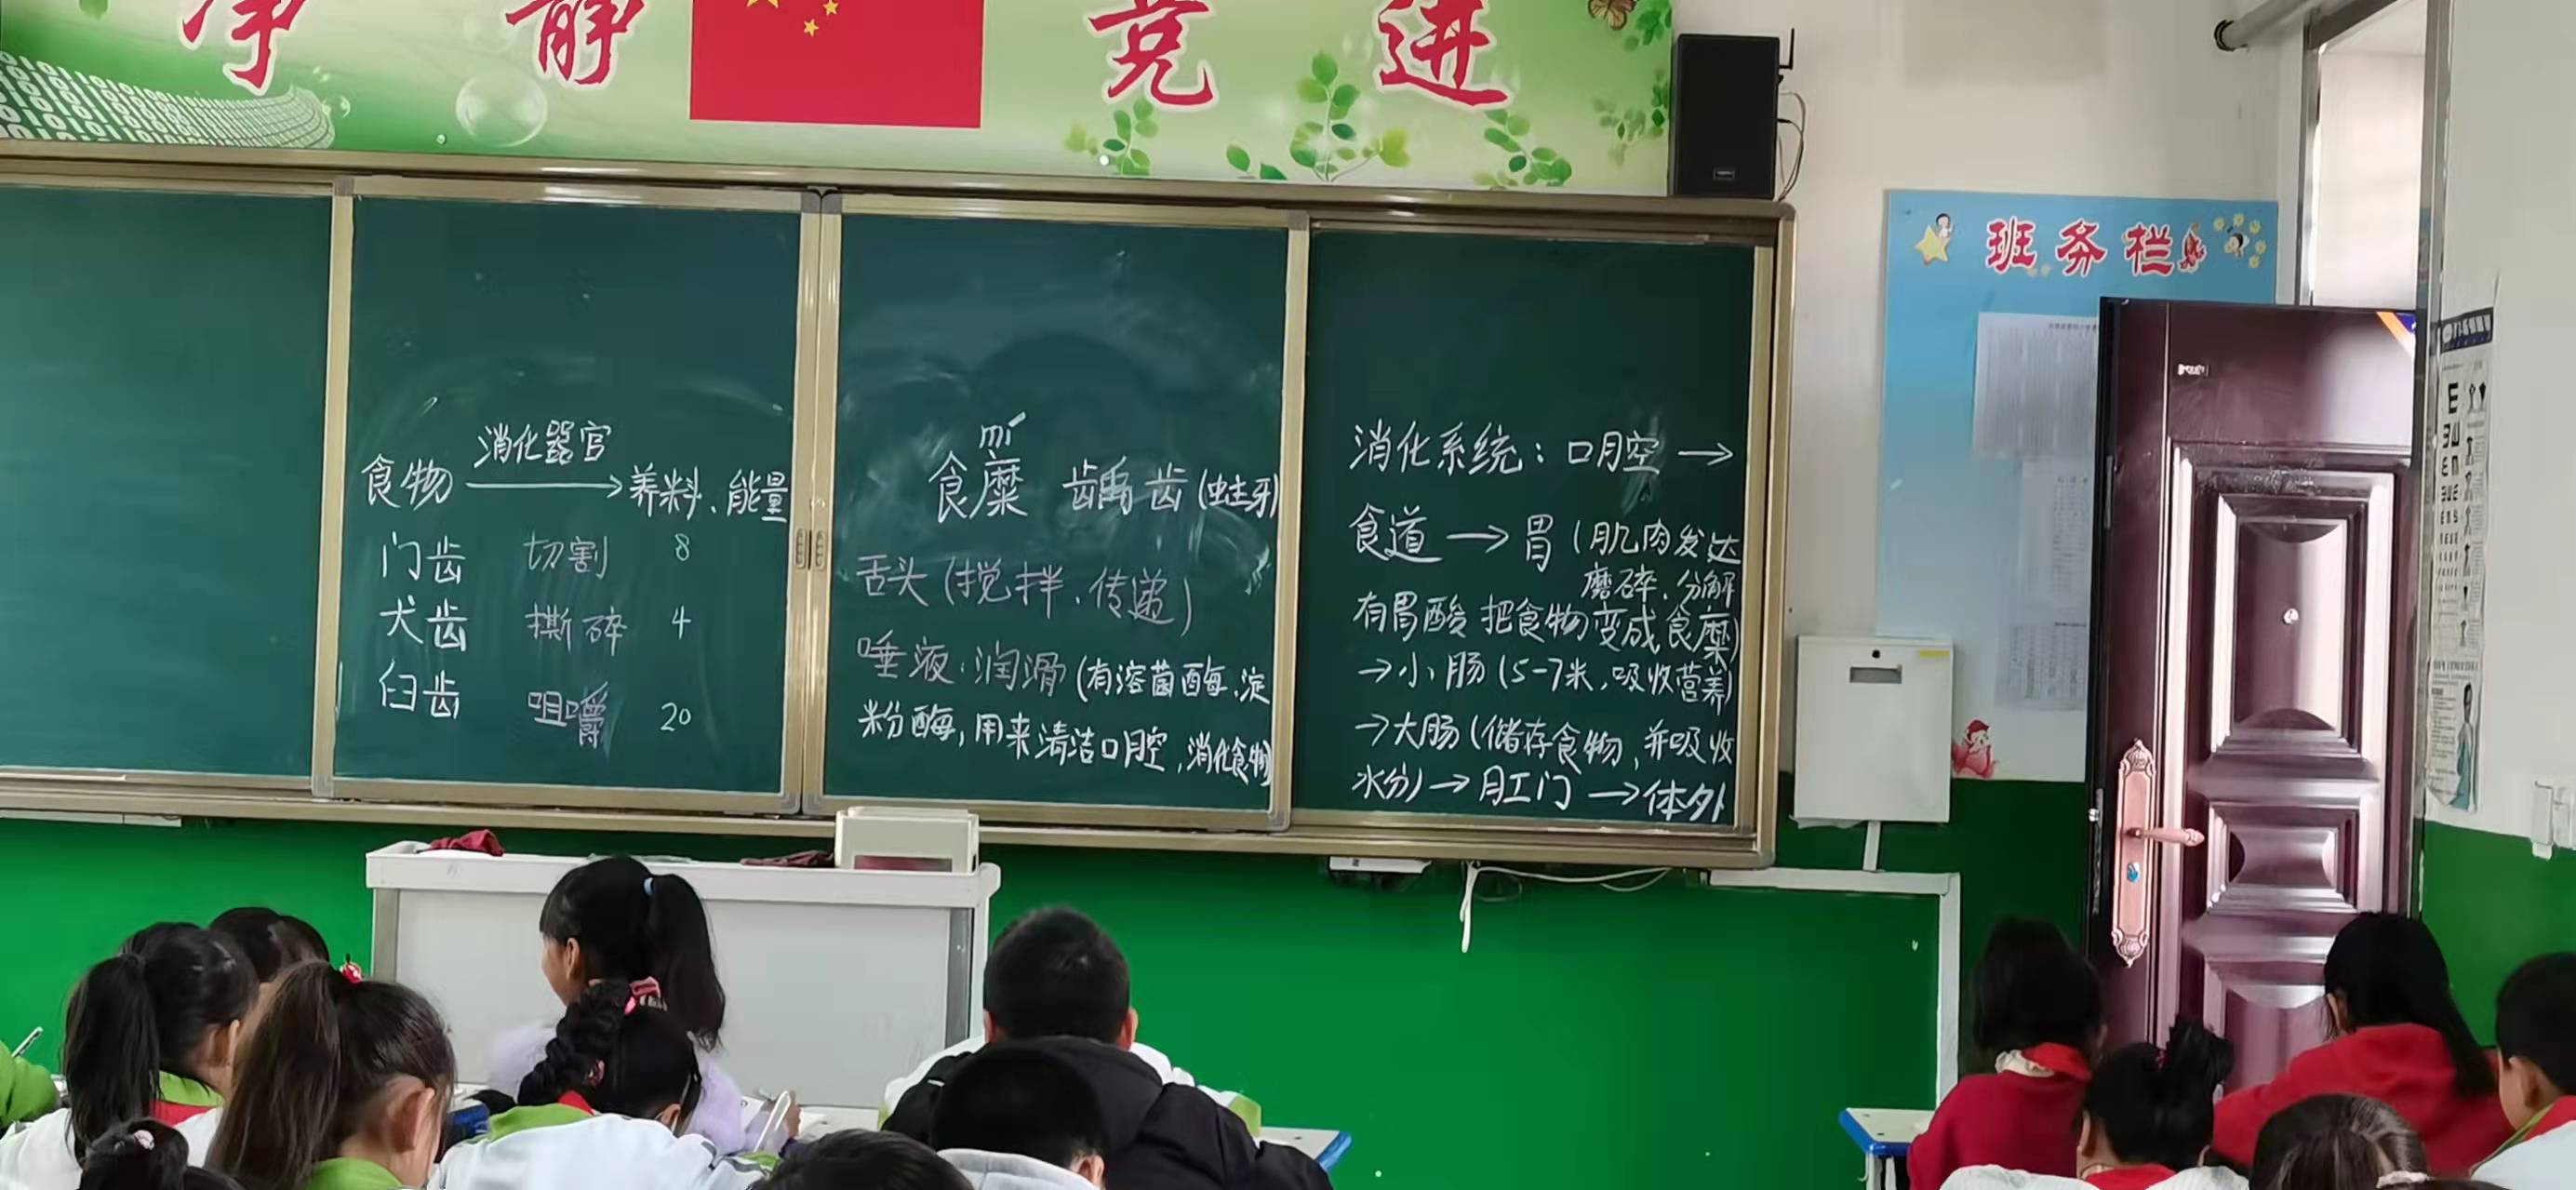 净 静 竞 进
班务栏
消化器官
食物 → 养料、能量
门齿 切割 8
犬齿 撕碎 4
臼齿 咀嚼 20
mí
食糜 龋齿 (蛀牙)
舌头 (搅拌、传递)
唾液:润滑 (有溶菌酶、淀
粉酶,用来清洁口腔,消化食物)
消化系统:口腔 →
食道 → 胃 (肌肉发达
磨碎、分解
有胃酸 把食物变成食糜)
→小肠 (5-7米,吸收营养)
→大肠 (储存食物,并吸收
水分) → 肛门 → 体外
E